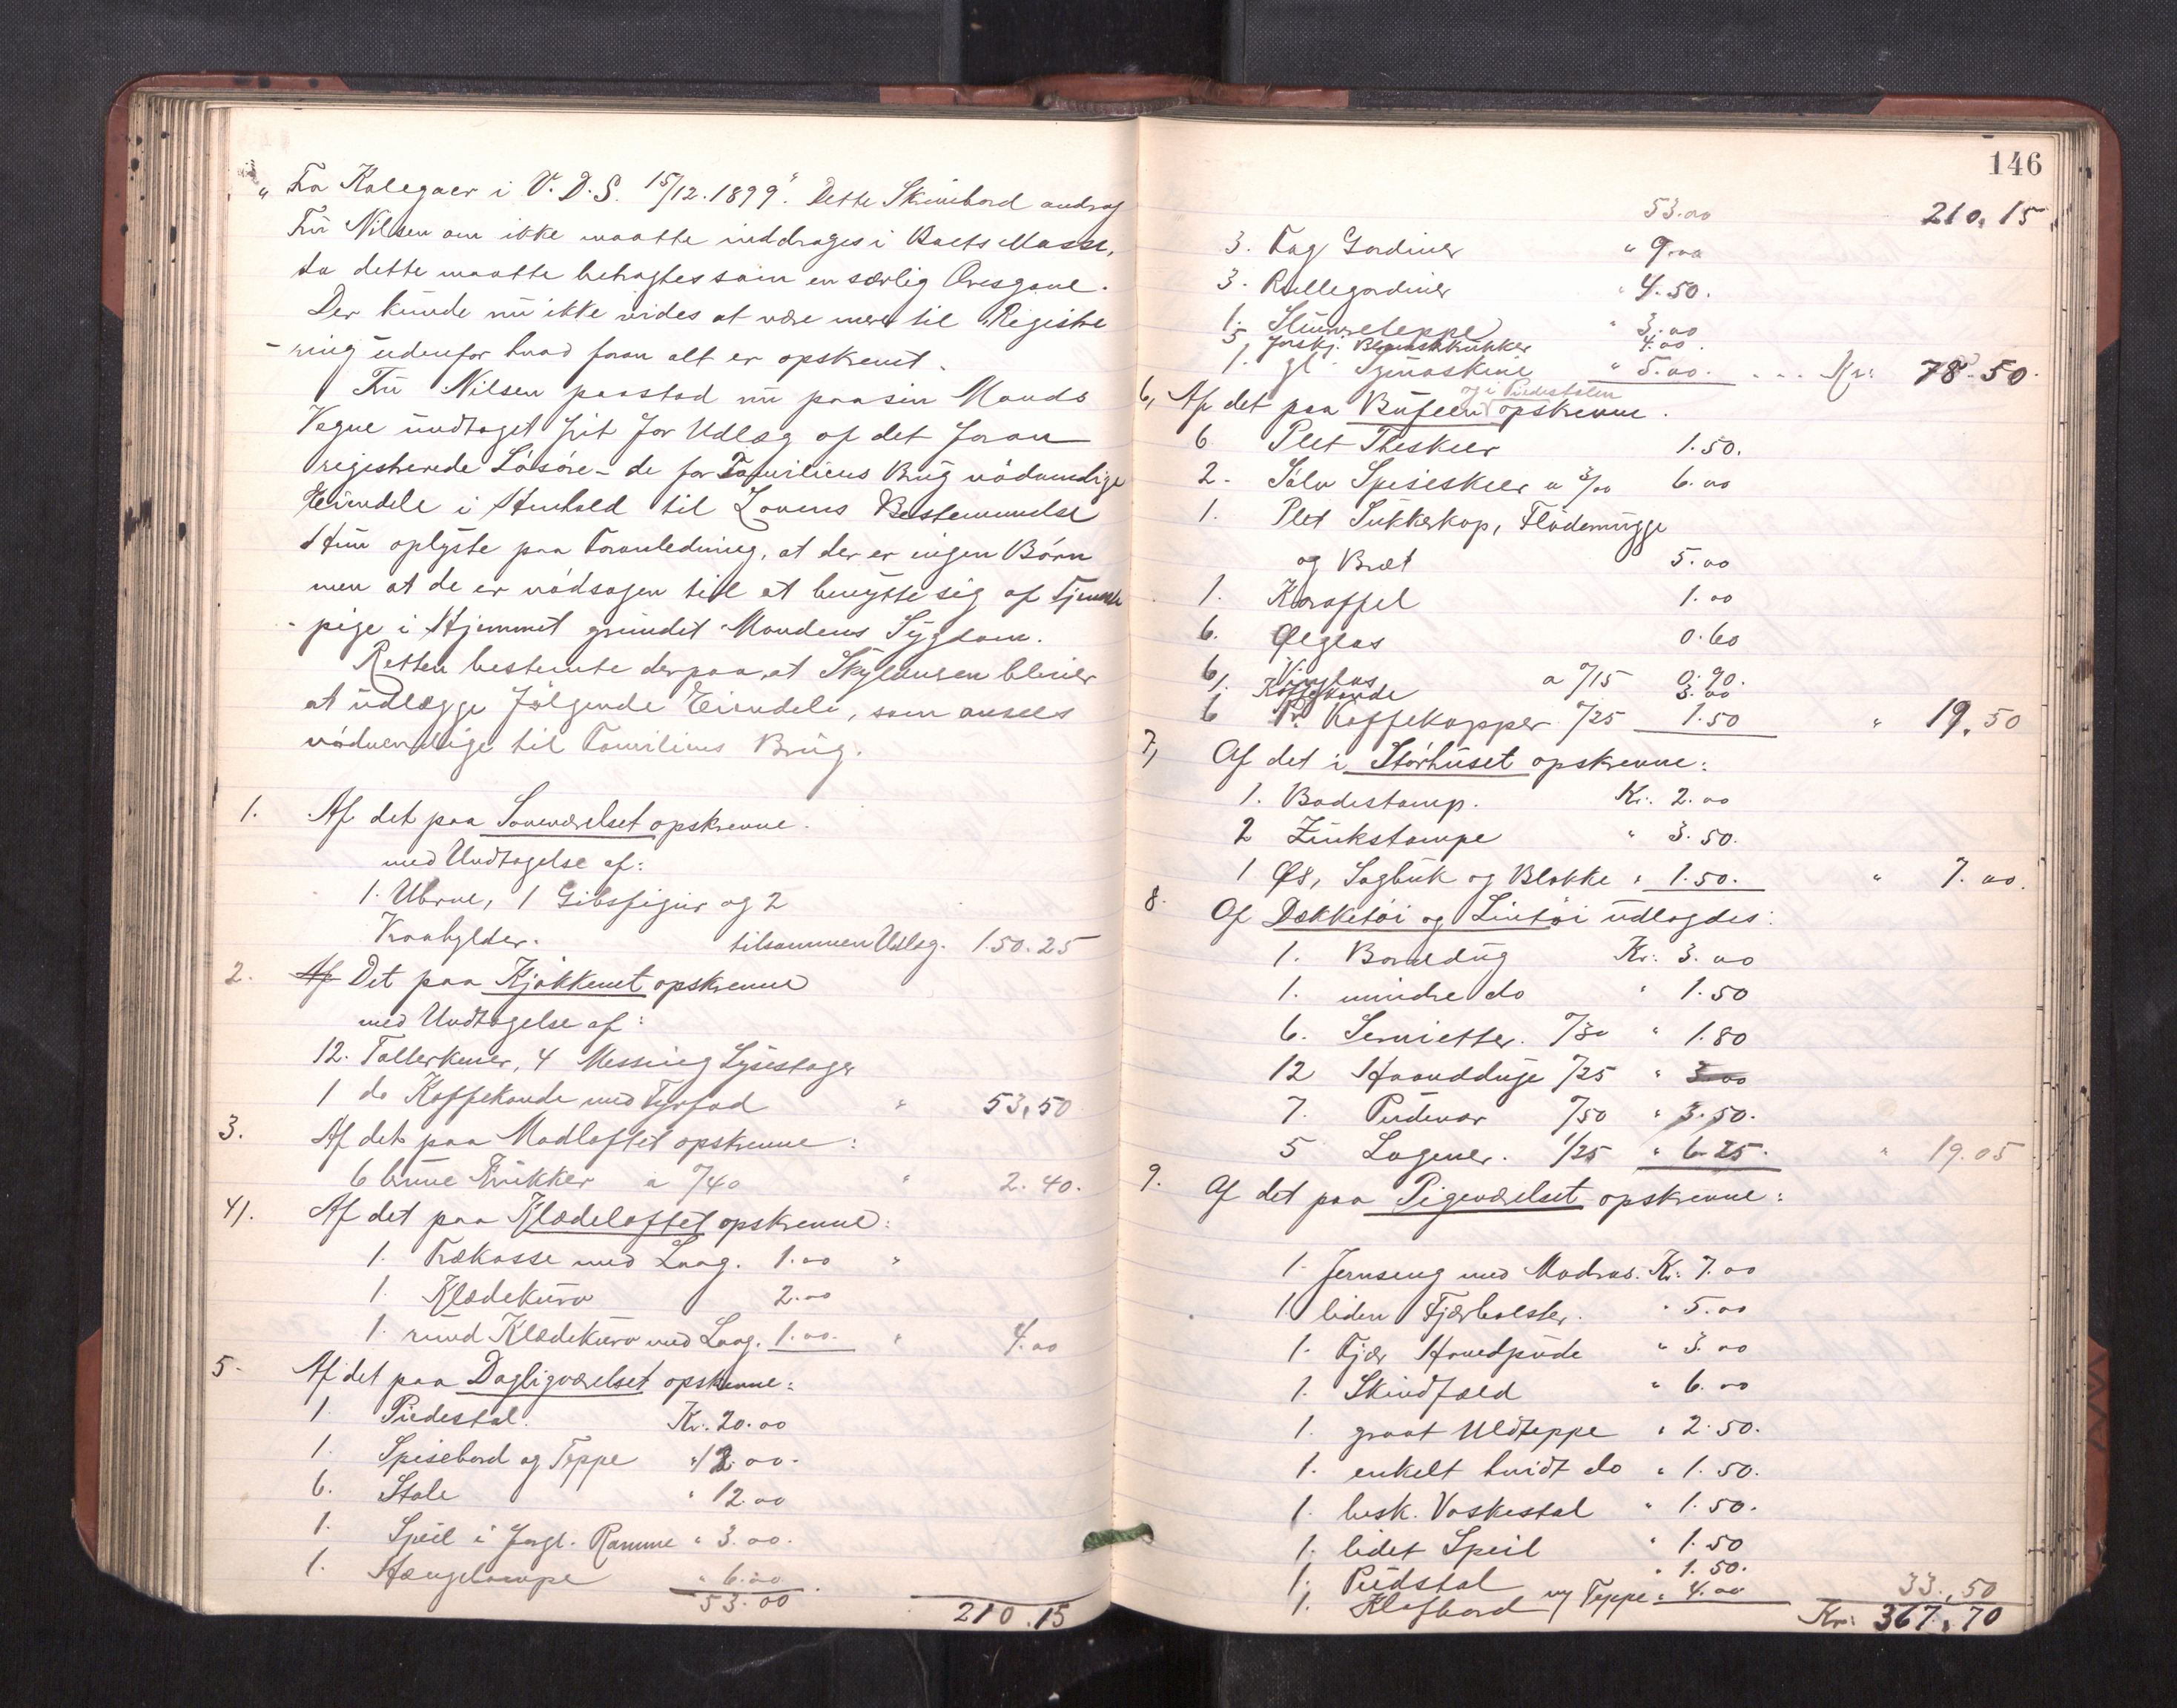 "Fra Kolegaer i V. D. S. 15/12. 1899". Dette Skrivebord androg
Fru Nilsen om ikke maatte inddrages i Boets Masse,
da dette maatte betragtes som en særlig Æresgave.
Der kunde nu ikke vides at være mere til Registre
-ring udenfor hvad foran alt er opskrevet.
Fru Nilsen paastod nu paa sin Mands
Vegne undtaget frit for Udlæg af det foran
registrerede Løsøre - de for Familiens Brug nødvendige
Eiendele i Henhold til Lovens Bestemmelse
Hun oplyste paa Foranledning, at der er ingen Børn
men at de er nødsagen til at benytte sig af Tjeneste
-pige i Hjemmet grundet Mandens Sygdom.
Retten bestemte derpaa, at Skyldneren bliver
at udlægge følgende Eiendele, som ansees
nødvendige til Familiens Brug.
1. Af det paa Soveværelset opskrevne.
med Undtagelse af:
1. Uhrue, 1 Gibsfigur og 2
Kraahylder. tilsammen Udlæg. 150.25
2. Af Det paa Kjøkkenet opskrevne
med Undtagelse af:
12. Tallerkener, 4 Messing Lysestager
1 do Kaffekande med Fyrfad " 53,50
3. Af det paa Madloftet opskrevne:
6 brune Krukker a 0/40 " 2.40.
4). Af det paa Klædeloftet opskrevne:
1. Trækasse med Laag. 1.00 "
1. Klædekurv 2.00
1. rund Klædekurv med Laag. 1.00. " 4.00
5. Af det paa Dagligværelset opskrevne:
1. Piedestal. Kr. 20.00
1. Spisebord og Teppe " 12.00.
6. Stole " 12.00
1. Speil i forgl. Ramme " 3.00.
1. Hængelampe " 6.00
53.00 210.15
146
53.00 210,15
3. Fag Gardiner " 9.00
3. Rullegardiner " 4.50.
1. Slumreteppe " 3.00
5 forskj. Blomsterkrukker 4.00.
1. gl. Symaskine " 5.00. ... Kr: 78.50.
og i Piedestalen
6, Af det paa Bufeen opskrevne.
6 Plet Theskeer 1.50.
2. Sølv Spiseskeer a 3/00 6.00
1. Plet Sukkerkop, Flødemugge
og Bræt 5.00
1. Karaffel 1.00
6. Ølglas 0.60
6. Vinglas a 0/15 0.90.
1. Kaffekande 3.00
6 Pr. Kaffekopper 0/25 1.50 " 19,50
7, Af det i Størhuset opskrevne:
1. Badestamp. Kr. 2.00
2 Zinkstampe " 3.50.
1 Øs, Sagbuk og Blokke " 1.50. " 7.00.
8. Af Dækketøi og Lintøi udlagdes:
1. Borddug Kr. 3.00
1. mindre do " 1.50
6. Servietter. 0/30 " 1.80
12 Haandduge 0/25 " 3.00
7. Pudevar 0/50 " 3.50.
5 Lagener. 1/25 " 6.25. " 19.05
9. Af det paa Pigeværelset opskrevne:
1. Jernseng med Madras. Kr. 7.00
1 liden Fjærbolster. " 5.00
1. Fjær Hovedpude " 3.00
1. Skindfæld " 6.00
1. graat Uldteppe " 2.50.
1. enkelt hvidt do " 1.50.
1. besk. Vaskestol " 1.50.
1. lidet Speil " 1.50
1. Piedstal " 1.50.
1. Klafbord og Teppe " 4.00 33,50
Kr: 367,70